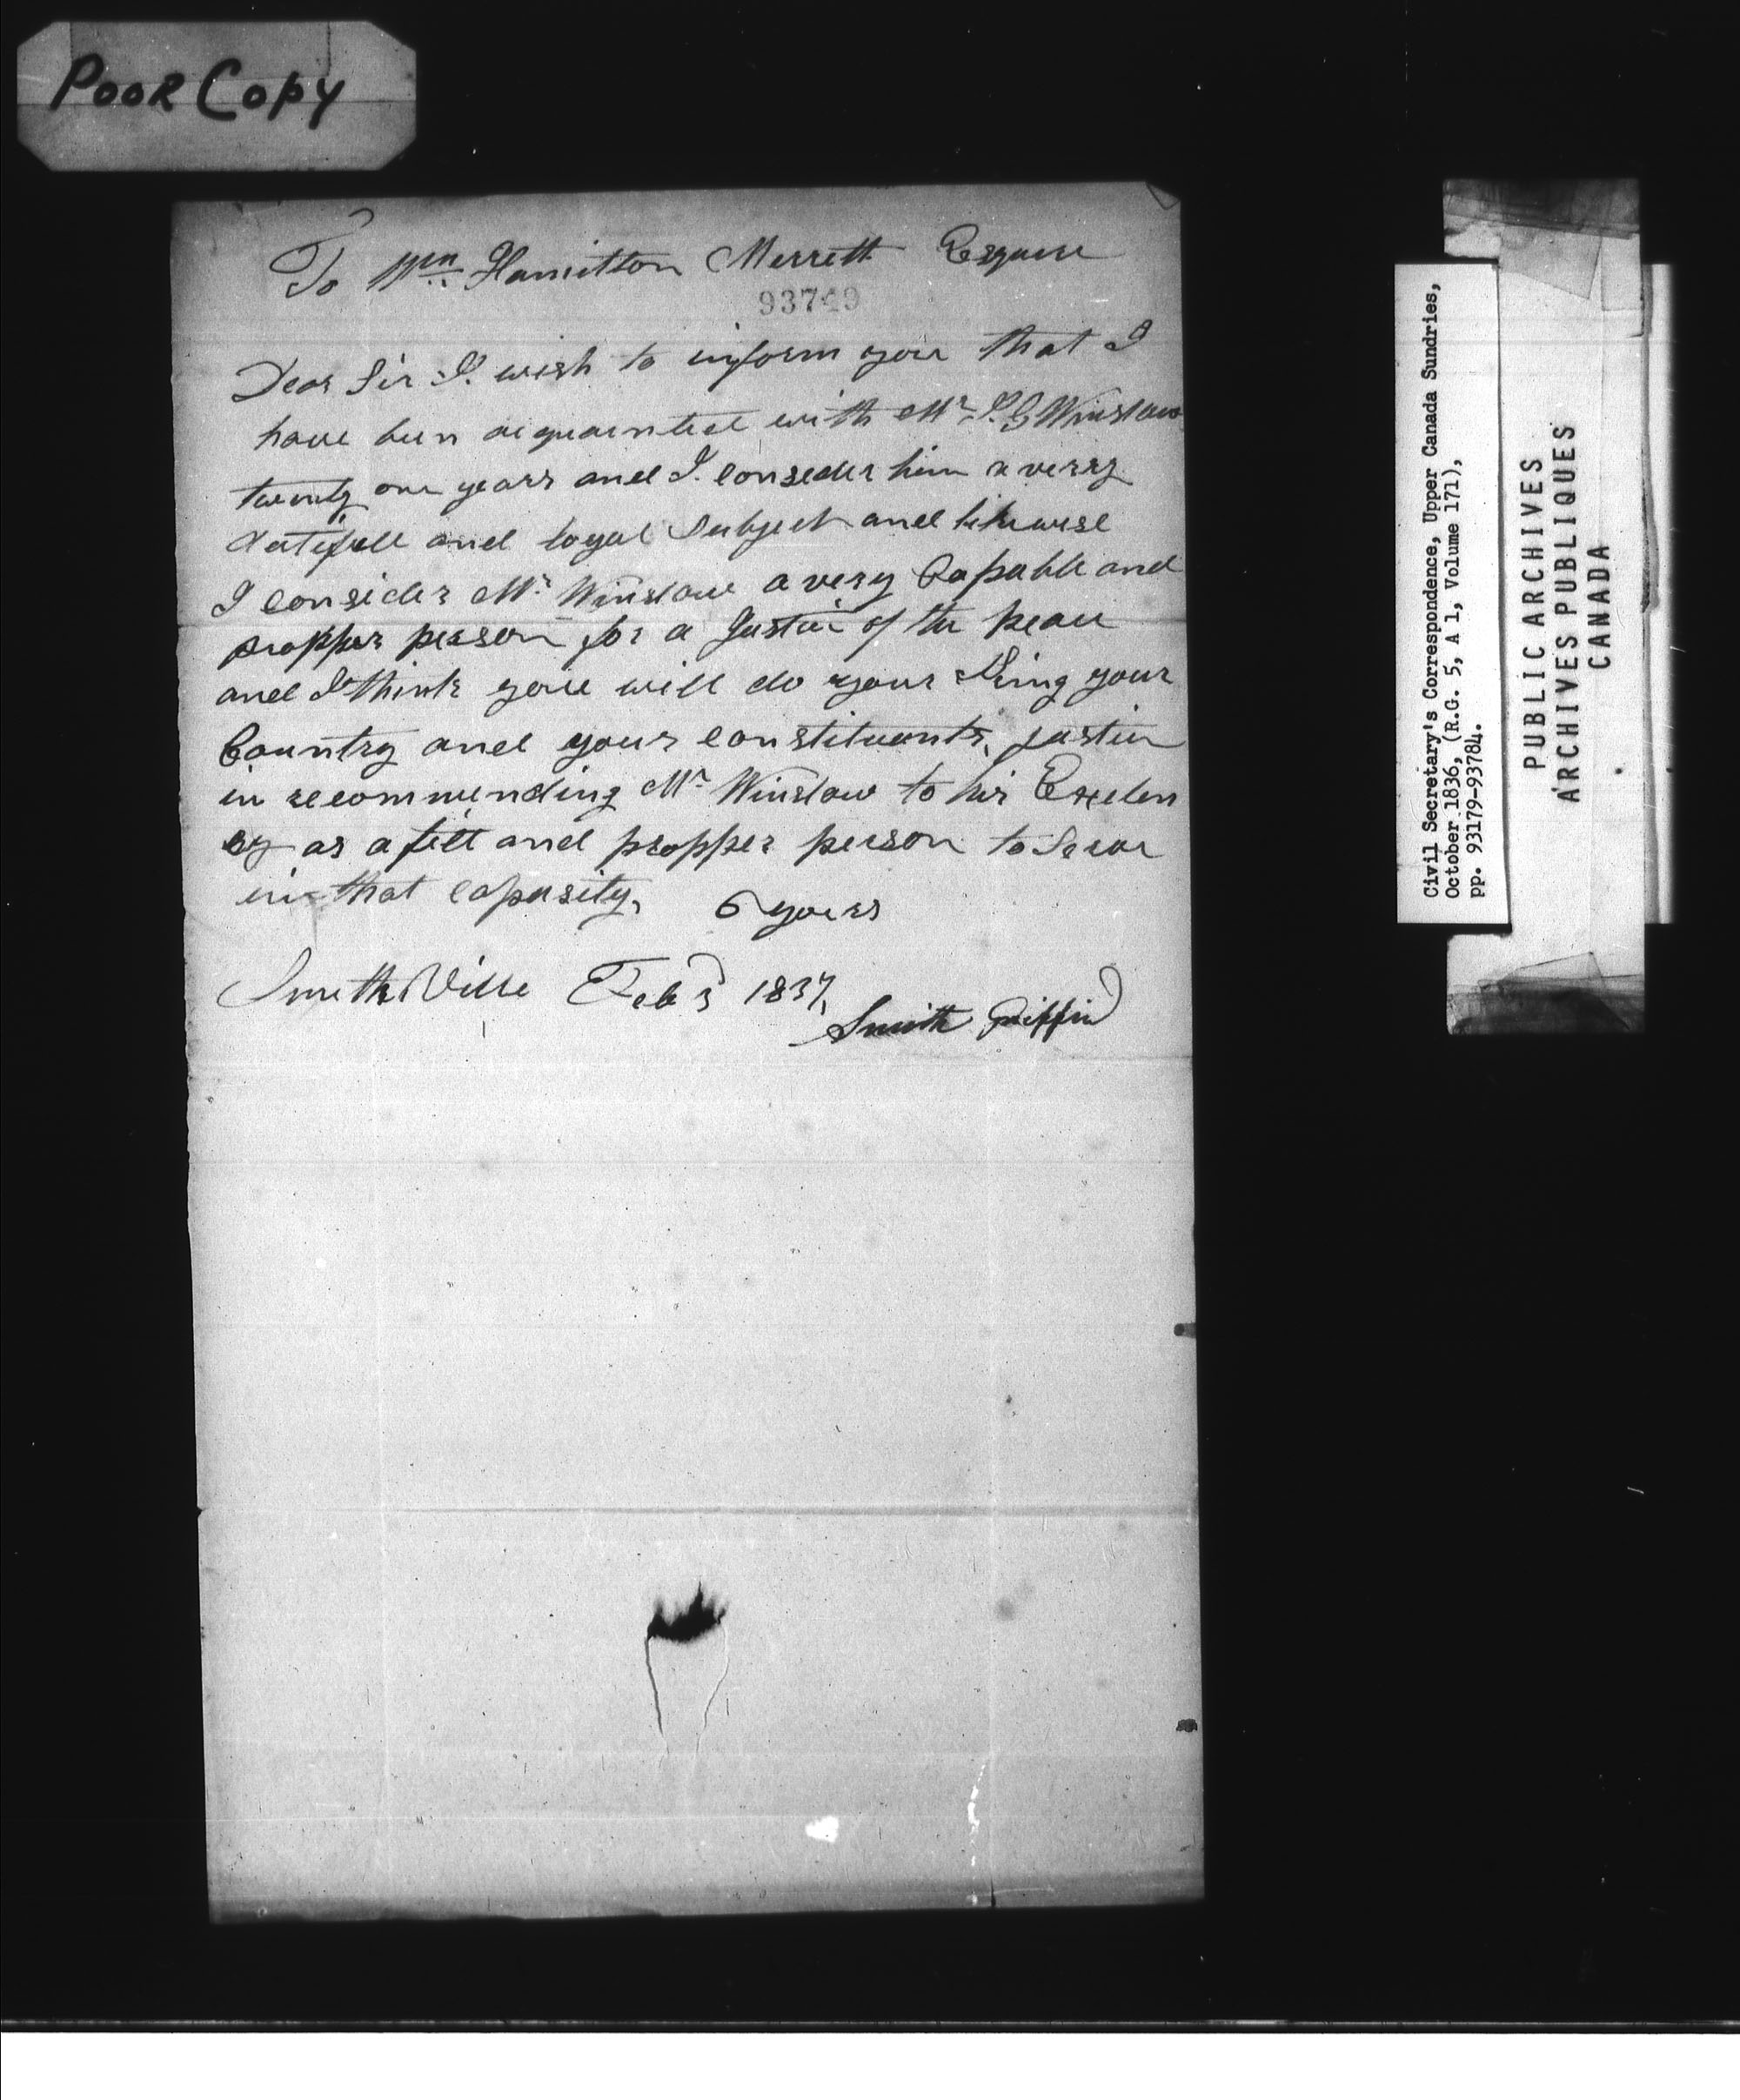 POOR COPY
To Wm Hamilton Merrett Esquire
93749
Dear Sir I. wish to inform you that I
have ben aiquaintied with Mr. Winslow
twenty one years and I. conseder him a verry
dutifull and loyal Subject and likewise
I consider Mr. Winslow a very Capable and
propper person for a Justice of the peace
and I think you will do your King your
Country and your constituents, justice
in recommending Mr. Winslow to his Exelen
cy as a fitt and propper person to Serve
in that capasity, yours
Smith Ville Feb 3 1837,
Smith Griffin
Civil Secretary's Correspondence, Upper Canada Sundries,
October 1836, (R.G. 5, A 1, Volume 171),
pp. 93179-93784.
PUBLIC ARCHIVES
ARCHIVES PUBLIQUES
CANADA